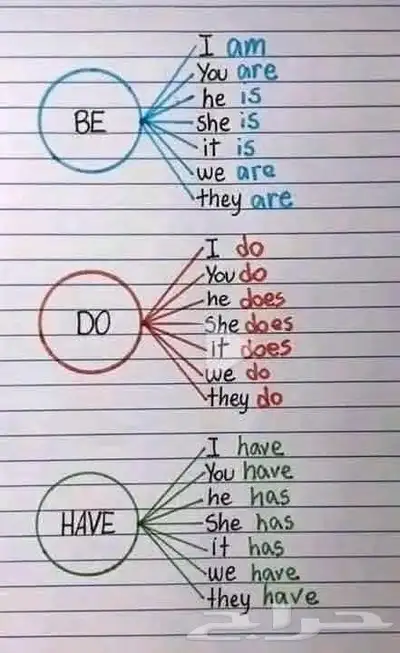 BE
I am
You are
he is
she is
it is
we are
they are
DO
I do
You do
he does
She does
it does
we do
they do
HAVE
I have
You have
he has
She has
it has
we have
they have
حراج